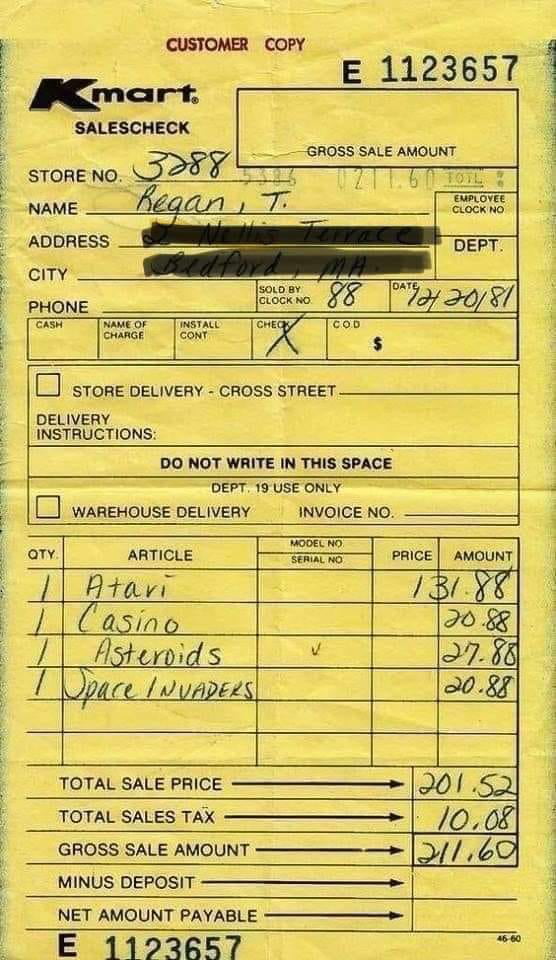 CUSTOMER COPY
E 1123657
Kmart®
SALESCHECK
GROSS SALE AMOUNT
STORE NO. 3288
5386 0211.60 TOTL
NAME Regan, T.
EMPLOYEE CLOCK NO
ADDRESS
DEPT.
CITY
PHONE
SOLD BY CLOCK NO. 88
DATE 12/20/81
CASH NAME OF CHARGE INSTALL CONT CHECK X C O D $
STORE DELIVERY - CROSS STREET
DELIVERY
INSTRUCTIONS:
DO NOT WRITE IN THIS SPACE
DEPT. 19 USE ONLY
WAREHOUSE DELIVERY INVOICE NO.
QTY. ARTICLE MODEL NO SERIAL NO PRICE AMOUNT
1 Atari 131.88
1 Casino 20.88
1 Asteroids ✓ 27.88
1 Space INVADERS 20.88
TOTAL SALE PRICE 201.52
TOTAL SALES TAX 10.08
GROSS SALE AMOUNT 211.60
MINUS DEPOSIT
NET AMOUNT PAYABLE
46-60
E 1123657